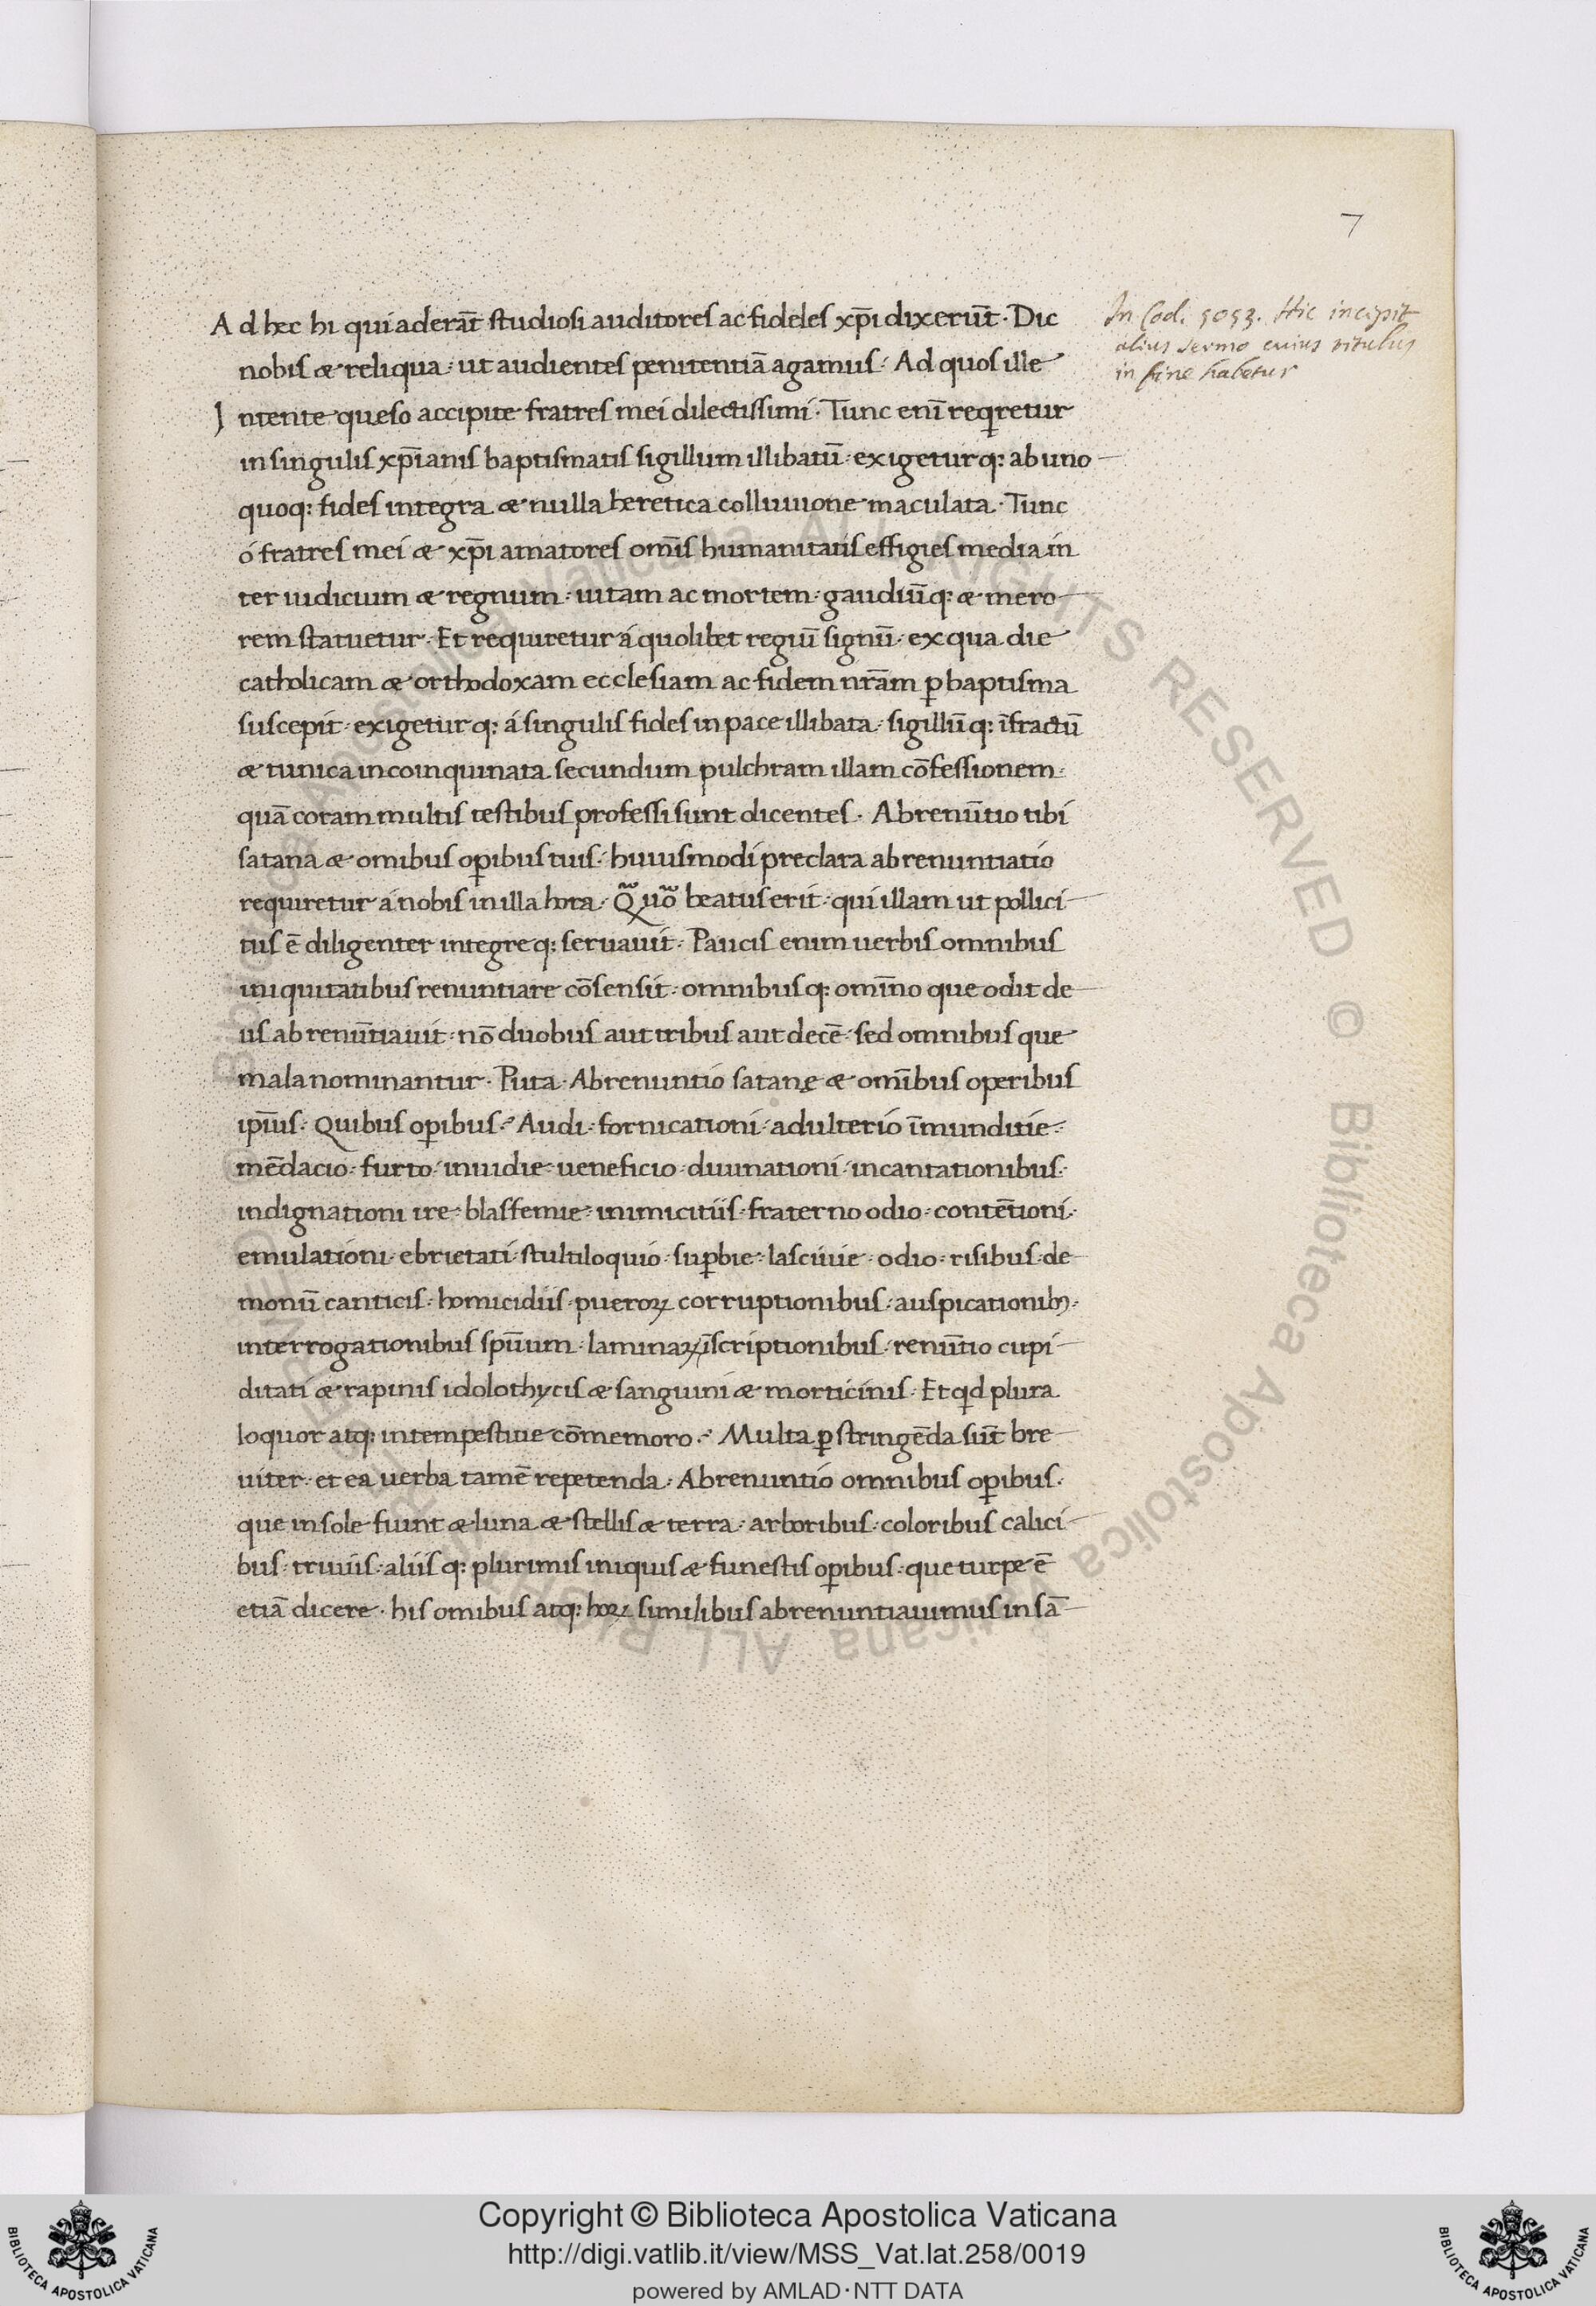 7
In Cod. 5093. Hic incipit
alius sermo cuius titulus
in fine habetur
Ad hec hi qui aderāt studiosi auditores ac fideles xp̄i dixerūt · Dic
nobis & reliqua · ut audientes penitentiā agamus · Ad quos ille
Intente queso accipite fratres mei dilectissimi · Tunc enī reqꝛetur
in singulis xp̄ianis baptismatis sigillum illibatū · exigeturq: ab uno
quoq: fides integra & nulla heretica colluuione maculata · Tunc
ó fratres mei & xp̄i amatores om̄is humanitatis effigies media in
ter iudicium & regnum · uitam ac mortem · gaudiūq: & mero
rem statuetur · Et requiretur á quolibet regiū signū · ex qua die
catholicam & orthodoxam ecclesiam ac fidem nr̄am ꝑ baptisma
suscepit · exigeturq: á singulis fides in pace illibata · sigillūq: īfractū
& tunica incoinquinata secundum pulchram illam cōfessionem ·
quā coram multis testibus professi sunt dicentes · Abrenūtio tibi
satana & omibus oꝑibus tuis · huiusmodi preclara abrenuntiatio
requiretur á nobis in illa hora · Quō beatus erit · qui illam ut pollici
tus ē diligenter integreq: seruauit · Paucis enim uerbis omnibus
iniquitatibus renuntiare cōsensit · omnibusq: omīno que odit de
us abrenūtiauit · nō duobus aut tribus aut decē · sed omnibus que
mala nominantur · Puta · Abrenuntio satanę & om̄ibus operibus
ip̄ius · Quibus oꝑibus · Audi · fornicationi · adulterio īmunditie ·
mēdacio · furto · inuidie · ueneficio · diuinationi · incantationibus ·
indignationi ire · blasfemie · inimicitiis · fraterno odio · contētioni ·
emulationi · ebrietati · stultiloquio · suꝑbie · lasciuie · odio · risibus · de
moniū canticis · homicidiis · pueroꝝ corruptionibus · auspicationibꝫ ·
interrogationibus spūum · laminaꝝ īscriptionibus · renūtio cupi
ditati & rapinis idolothycis & sanguini & morticinis · Et qd plura
loquor atq: intempestiue cōmemoro · Multa ꝑstringēda sūt bre
uiter · et ea uerba tamē repetenda · Abrenuntio omnibus oꝑibus ·
que in sole fiunt & luna & stellis & terra · arboribus · coloribus calici
bus · triuiis · aliisq: plurimis iniquis & funestis oꝑibus · que turpe ē
etiā dicere · his omibus atq: hoꝝ similibus abrenuntiauimus in sā
© Biblioteca Apostolica Vaticana ALL RIGHTS RESERVED
Copyright © Biblioteca Apostolica Vaticana
http://digi.vatlib.it/view/MSS_Vat.lat.258/0019
powered by AMLAD·NTT DATA
BIBLIOTECA APOSTOLICA VATICANA
BIBLIOTECA APOSTOLICA VATICANA